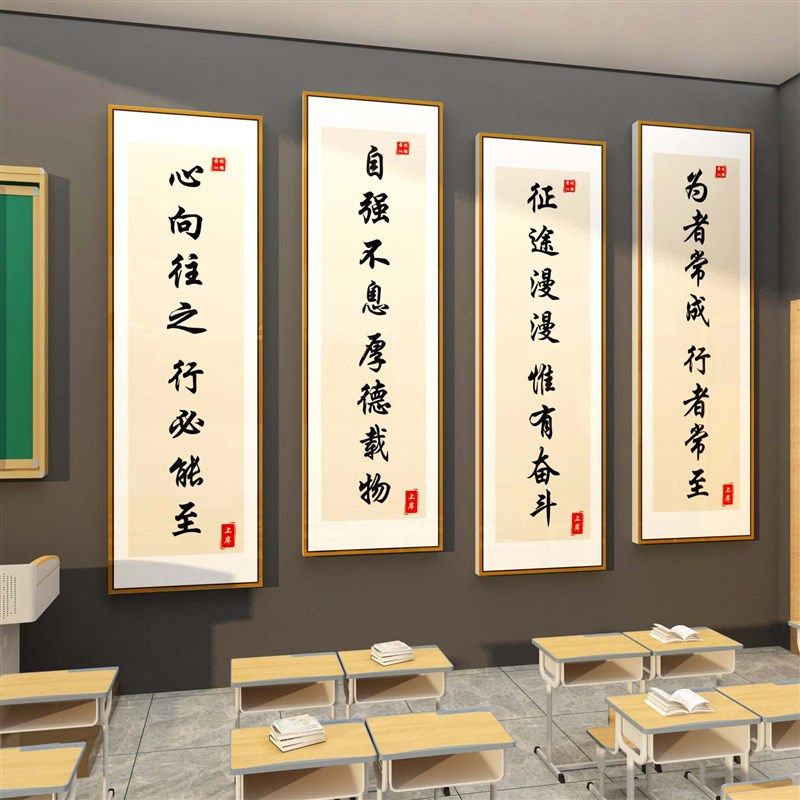 心向往之 行必能至
上岸
自强不息 厚德载物
上岸
征途漫漫 惟有奋斗
上岸
为者常成 行者常至
上岸